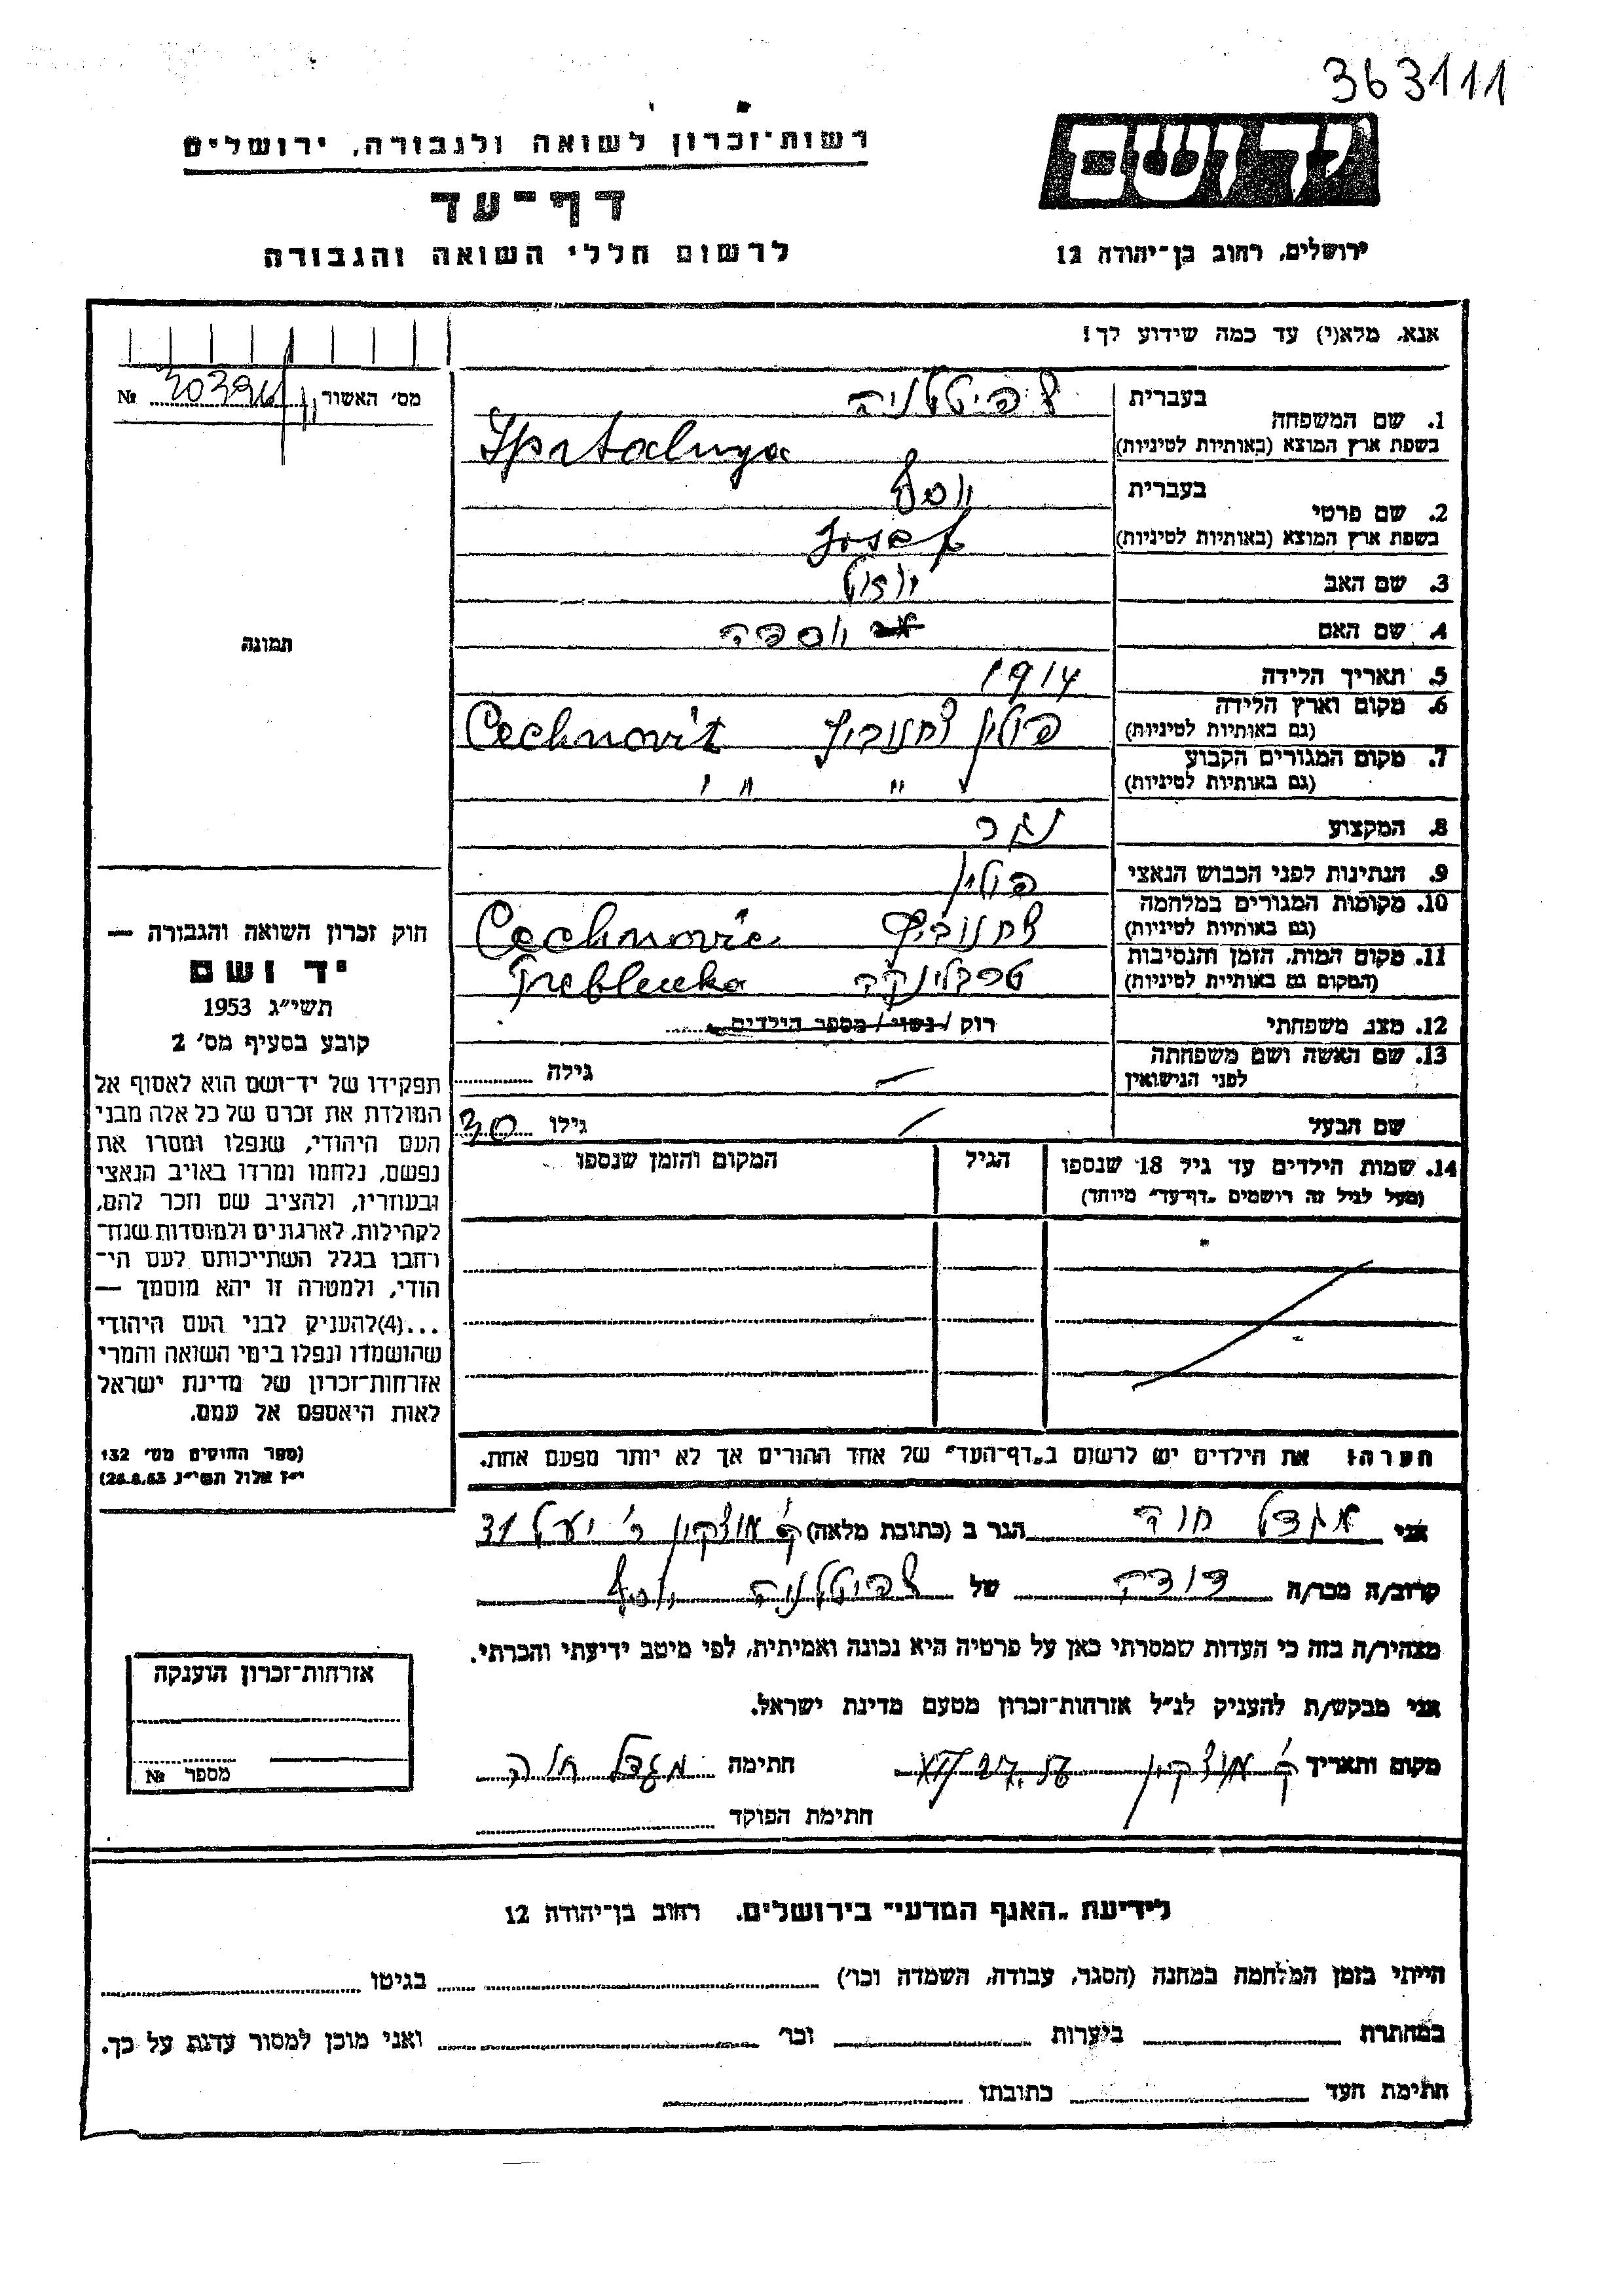 363111
רשות־זכרון לשואה ולגבורה, ירושלים
יד ושם
דף־עד
לרשום חללי השואה והגבורה
ירושלים, רחוב בן־יהודה 12
אנא, מלא(י) עד כמה שידוע לך!
מס׳ האשור № 
1. שם המשפחה בעברית
בשפת ארץ המוצא (באותיות לטיניות)
2. שם פרטי בעברית יוסף
בשפת ארץ המוצא (באותיות לטיניות) Josef
3. שם האב
4. שם האם
תמונה
5. תאריך הלידה 1914
6. מקום וארץ הלידה פולין
(גם באותיות לטיניות)
7. מקום המגורים הקבוע " " "
(גם באותיות לטיניות)
8. המקצוע נגר
9. הנתינות לפני הכבוש הנאצי פולין
10. מקומות המגורים במלחמה
(גם באותיות לטיניות)
11. מקום המות, הזמן והנסיבות טרבלינקה
(המקום גם באותיית לטיניות)
12. מצב משפחתי רוק / נשוי / מספר הילדים
13. שם האשה ושם משפחתה גילה
לפני הנישואין
שם הבעל גילו 30
14. שמות הילדים עד גיל 18 שנספו הגיל המקום והזמן שנספו
(מעל לגיל זה רושמים „דף־עד״ מיוחד)
חוק זכרון השואה והגבורה —
יד ושם
תשי״ג 1953
קובע בסעיף מס׳ 2
תפקידו של יד־ושם הוא לאסוף אל
המולדת את זכרם של כל אלה מבני
העם היהודי, שנפלו ומסרו את
נפשם, נלחמו ומרדו באויב הנאצי
ובעוזריו, ולהציב שם וזכר להם,
לקהילות, לארגונים ולמוסדות שנח־
רחבו בגלל השתייכותם לעם הי־
הודי, ולמטרה זו יהא מוסמך —
...(4)להעניק לבני העם היהודי
שהושמדו ונפלו בימי השואה והמרי
אזרחות־זכרון של מדינת ישראל
לאות היאספם אל עמם.
(ספר החוקים מס׳ 132
י״ז אלול תשי״ג 28.8.53)
הערה: את הילדים יש לרשום ב„דף־העד״ של אחד ההורים אך לא יותר מפעם אחת.
אני מגדל חוה הגר ב (כתובת מלאה) ק׳ מוצקין ר׳ יעל 31
קרוב/ה מכר/ה דודה של יוסף
מצהיר/ה בזה כי העדות שמסרתי כאן על פרטיה היא נכונה ואמיתית, לפי מיטב ידיעתי והכרתי.
אני מבקש/ת להעניק לנ״ל אזרחות־זכרון מטעם מדינת ישראל.
מקום ותאריך ק׳ מוצקין חתימה מגדל חוה
חתימת הפוקד
אזרחות־זכרון הוענקה
מספר №
לידיעת „האגף המדעי״ בירושלים, רחוב בן־יהודה 12
הייתי בזמן המלחמה במחנה (הסגר, עבודה, השמדה וכו׳) בגיטו
במחתרת ביערות וכו׳ ואני מוכן למסור עדות על כך.
חתימת העד כתובתו